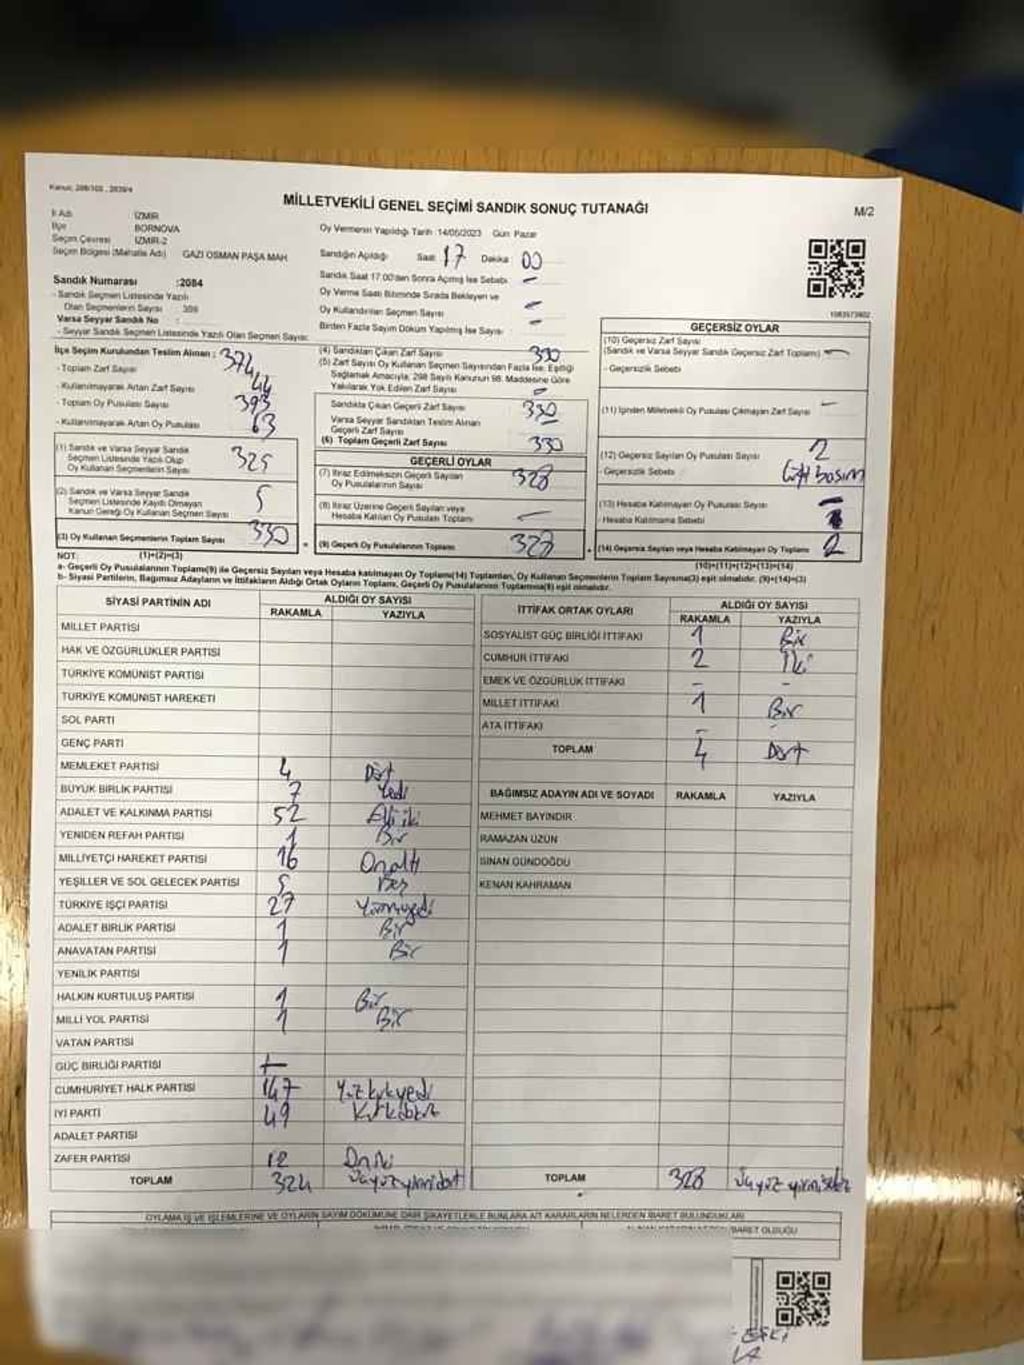 Kanun, 298/105, 2839/4
MİLLETVEKİLİ GENEL SEÇİMİ SANDIK SONUÇ TUTANAĞI
M/2
İl Adı İZMİR
İlçe BORNOVA
Seçim Çevresi İZMİR-2
Seçim Bölgesi (Mahalle Adı) GAZİ OSMAN PAŞA MAH.
Oy Vermenin Yapıldığı Tarih :14/05/2023 Gün: Pazar
Sandığın Açıldığı Saat 17 Dakika 00
Sandık Saat 17.00'den Sonra Açılmış İse Sebebi -
Oy Verme Saati Bitiminde Sırada Bekleyen ve
Oy Kullandırılan Seçmen Sayısı -
Birden Fazla Sayım Döküm Yapılmış İse Sayısı -
Sandık Numarası :2084
- Sandık Seçmen Listesinde Yazılı
Olan Seçmenlerin Sayısı
Varsa Seyyar Sandık No :
- Seyyar Sandık Seçmen Listesinde Yazılı Olan Seçmen Sayısı:
İlçe Seçim Kurulundan Teslim Alınan :
- Toplam Zarf Sayısı 374
- Kullanılmayarak Artan Zarf Sayısı 44
- Toplam Oy Pusulası Sayısı 393
- Kullanılmayarak Artan Oy Pusulası 63
(1) Sandık ve Varsa Seyyar Sandık
Seçmen Listesinde Yazılı Olup
Oy Kullanan Seçmenlerin Sayısı 325
(2) Sandık ve Varsa Seyyar Sandık
Seçmen Listesinde Kayıtlı Olmayan
Kanun Gereği Oy Kullanan Seçmen Sayısı 5
(3) Oy Kullanan Seçmenlerin Toplam Sayısı 330
(1)+(2)=(3)
(4) Sandıktan Çıkan Zarf Sayısı 330
(5) Zarf Sayısı Oy Kullanan Seçmen Sayısından Fazla İse, Eşitliği
Sağlamak Amacıyla, 298 Sayılı Kanunun 98. Maddesine Göre
Yakılarak Yok Edilen Zarf Sayısı -
Sandıkta Çıkan Geçerli Zarf Sayısı 330
Varsa Seyyar Sandıktan Teslim Alınan
Geçerli Zarf Sayısı -
(6) Toplam Geçerli Zarf Sayısı 330
GEÇERLİ OYLAR
(7) İtiraz Edilmeksizin Geçerli Sayılan
Oy Pusulalarının Sayısı 328
(8) İtiraz Üzerine Geçerli Sayılan veya
Hesaba Katılan Oy Pusulası Toplamı -
(9) Geçerli Oy Pusulalarının Toplamı 328
GEÇERSİZ OYLAR
(10) Geçersiz Zarf Sayısı
(Sandık ve Varsa Seyyar Sandık Geçersiz Zarf Toplamı) -
- Geçersizlik Sebebi
(11) İçinden Milletvekili Oy Pusulası Çıkmayan Zarf Sayısı -
(12) Geçersiz Sayılan Oy Pusulası Sayısı 2
- Geçersizlik Sebebi Çift basım
(13) Hesaba Katılmayan Oy Pusulası Sayısı -
- Hesaba Katılmama Sebebi
(14) Geçersiz Sayılan veya Hesaba Katılmayan Oy Toplamı 2
(10)+(11)+(12)+(13)=(14)
NOT:
a- Geçerli Oy Pusulalarının Toplamı(9) ile Geçersiz Sayılan veya Hesaba katılmayan Oy Toplamı(14) Toplamları, Oy Kullanan Seçmenlerin Toplam Sayısına(3) eşit olmalıdır. (9)+(14)=(3)
b- Siyasi Partilerin, Bağımsız Adayların ve İttifakların Aldığı Ortak Oyların Toplamı, Geçerli Oy Pusulalarının Toplamına(9) eşit olmalıdır.
SİYASİ PARTİNİN ADI ALDIĞI OY SAYISI
RAKAMLA YAZIYLA
MİLLET PARTİSİ
HAK VE ÖZGÜRLÜKLER PARTİSİ
TÜRKİYE KOMÜNİST PARTİSİ
TÜRKİYE KOMÜNİST HAREKETİ
SOL PARTİ
GENÇ PARTİ
MEMLEKET PARTİSİ 4 Dört
BÜYÜK BİRLİK PARTİSİ 7 Yedi
ADALET VE KALKINMA PARTİSİ 52 Elli iki
YENİDEN REFAH PARTİSİ 1 Bir
MİLLİYETÇİ HAREKET PARTİSİ 16 Onaltı
YEŞİLLER VE SOL GELECEK PARTİSİ 5 Beş
TÜRKİYE İŞÇİ PARTİSİ 27 Yirmiyedi
ADALET BİRLİK PARTİSİ 1 Bir
ANAVATAN PARTİSİ 1 Bir
YENİLİK PARTİSİ
HALKIN KURTULUŞ PARTİSİ 1 Bir
MİLLİ YOL PARTİSİ 1 Bir
VATAN PARTİSİ
GÜÇ BİRLİĞİ PARTİSİ
CUMHURİYET HALK PARTİSİ 147 Yüzkırkyedi
İYİ PARTİ 49 Kırkdokuz
ADALET PARTİSİ
ZAFER PARTİSİ 12 Oniki
TOPLAM 324 Üçyüzyirmidört
İTTİFAK ORTAK OYLARI ALDIĞI OY SAYISI
RAKAMLA YAZIYLA
SOSYALİST GÜÇ BİRLİĞİ İTTİFAKI 1 Bir
CUMHUR İTTİFAKI 2 İki
EMEK VE ÖZGÜRLÜK İTTİFAKI - -
MİLLET İTTİFAKI 1 Bir
ATA İTTİFAKI - -
TOPLAM 4 Dört
BAĞIMSIZ ADAYIN ADI VE SOYADI RAKAMLA YAZIYLA
MEHMET BAYINDIR
RAMAZAN UZUN
SİNAN GÜNDOĞDU
KENAN KAHRAMAN
TOPLAM 328 Üçyüz yirmisekiz
OYLAMA İŞ VE İŞLEMLERİNE VE OYLARIN SAYIM DÖKÜMÜNE DAİR ŞİKAYETLERLE BUNLARA AİT KARARLARIN NELERDEN İBARET BULUNDUKLARI